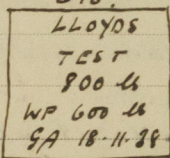 LLOYDS
TEST
800 lb
WP 600 lb
GA 18·11·38